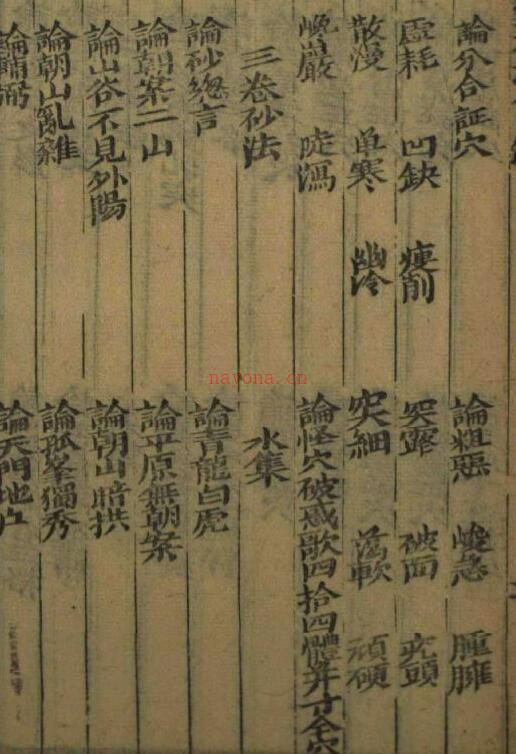 論分合証穴 論粗惡 峻急 腫臃
虛耗 凹缺 瘦削 突露 破面 疙頭
散漫 单寒 幽冷 突細 蕩軟 頑硬
巉巖 陡瀉 論怪穴破惑歌四拾四體并寸金穴
三卷砂法 水集
論砂總言 論青龍白虎
論朝案二山 論平原無朝案
論山谷不見外陽 論朝山暗拱
論朝山亂雜 論孤峯獨秀
論輔弼 論天門地户
nayona.cn